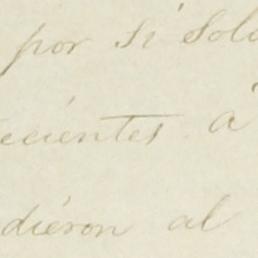 por si Solo
ecientes á
diéron al